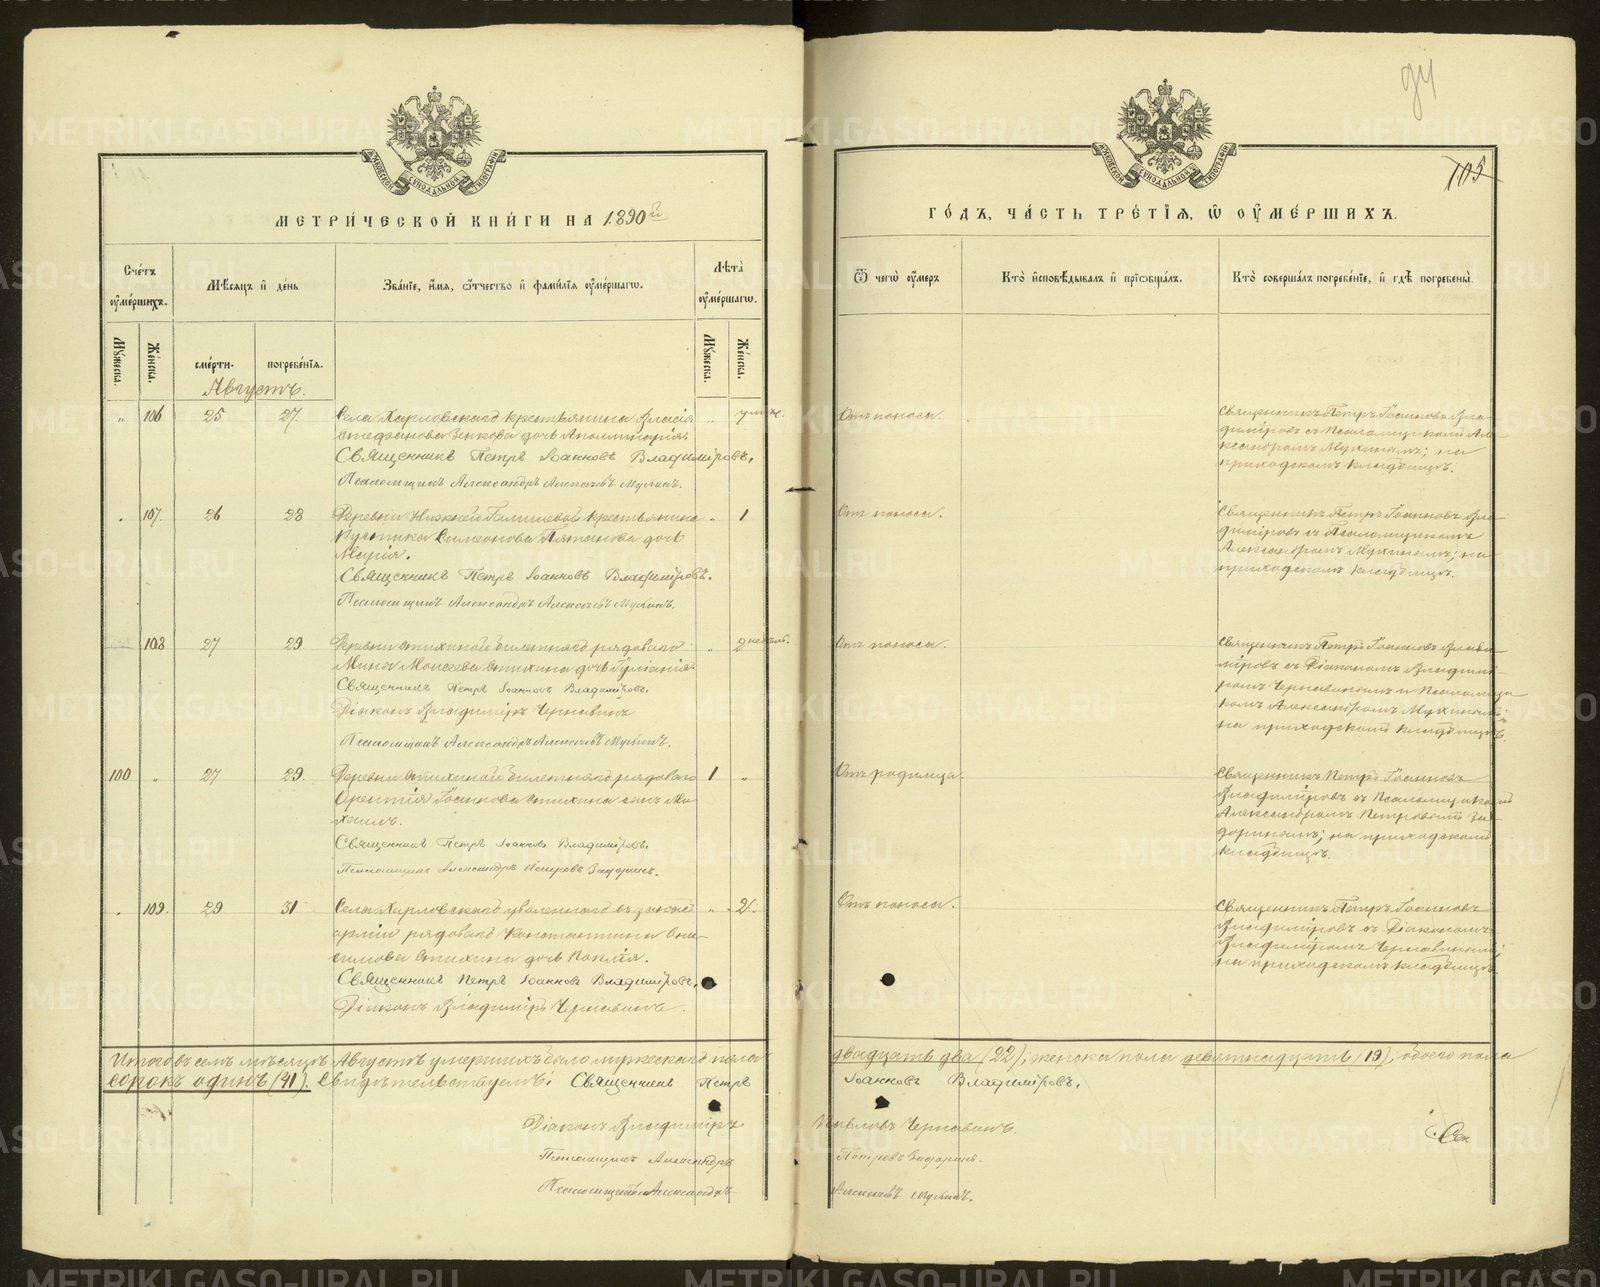 МЕТРИ́ЧЕСКОЙ КНИ́ГИ НА 1890й
ГО́ДЪ, ЧА́СТЬ ТРЕ́ТІЯ, Ѿ ОУ҆МЕ́РШИХЪ.
94
105
Счетъ оумершихъ.
Мѣсяцъ и день
Званіе, имя, ѿтчество и фамилія оумершагѡ.
Лѣта оумершагѡ.
Ѿ чегѡ оумеръ
Кто исповѣдывалъ и пріѡбщалъ.
Кто совершалъ погребеніе, и гдѣ погребены.
Мужеска.
Женска.
смерти.
погребенія.
Мужеска.
Женска.
Августъ.
„ 106 25 27.
Села Харловскаго крестьянина Власія
Стефанова Зенкова дочь Аполлинарія.
Священникъ Петръ Іоанновъ Владиміровъ.
Псаломщикъ Александръ Алексѣевъ Мухинъ.
Отъ поноса.
Священникъ Петръ Іоанновъ Вла-
диміровъ съ Псаломщикомъ Але-
ксандромъ Мухинымъ; на
приходскомъ кладбищѣ.
107. 26 28
Деревни Нижней крестьянина
Симеонова дочь
Марія.
Священникъ Петръ Іоанновъ Владиміровъ.
Псаломщикъ Александръ Алексѣевъ Мухинъ.
„ 1
Отъ поноса.
Священникъ Петръ Іоанновъ Вла-
диміровъ съ Псаломщикомъ
Александромъ Мухинымъ; на
приходскомъ кладбищѣ.
108 27 29
Деревни билетнаго рядоваго
Мины Моисеева дочь Іуліанія.
Священникъ Петръ Іоанновъ Владиміровъ.
Діаконъ Владиміръ Чернавинъ
Псаломщикъ Александръ Алексѣевъ Мухинъ.
„ 2 недѣль.
Отъ поноса.
Священникъ Петръ Іоанновъ Влади-
міровъ съ Діакономъ Владимі-
ромъ Чернавинымъ и Псаломщи-
комъ Александромъ Мухинымъ;
на приходскомъ кладбищѣ.
100 „ 27 29.
Деревни билетнаго рядоваго
Іоаннова сынъ Ми-
хаилъ.
Священникъ Петръ Іоанновъ Владиміровъ.
Псаломщикъ Александръ Петровъ Задоринъ.
1 „
Отъ родимца.
Священникъ Петръ Іоанновъ
Владиміровъ съ Псаломщикомъ
Александромъ Петровымъ За-
доринымъ; на приходскомъ
кладбищѣ.
109. 29 31
Села Харловскаго уволеннаго въ запасъ
арміи рядоваго Константина Они-
симова дочь
Священникъ Петръ Іоанновъ Владиміровъ.
Діаконъ Владиміръ Чернавинъ.
„ 2.
Отъ поноса.
Священникъ Петръ Іоанновъ
Владиміровъ съ Діакономъ
Владиміромъ Чернавинымъ;
на приходскомъ кладбищѣ.
Итого въ семъ мѣсяцѣ Августѣ умершихъ было мужескаго пола двадцать два (22), женска пола девятнадцать (19), обоего пола
сорокъ одинъ (41). Свидѣтельствуемъ: Священникъ Петръ Іоанновъ Владиміровъ.
Діаконъ Владиміръ Павловъ Чернавинъ.
Псаломщикъ Александръ Петровъ Задоринъ.
Псаломщикъ Александръ Алексѣевъ Мухинъ.